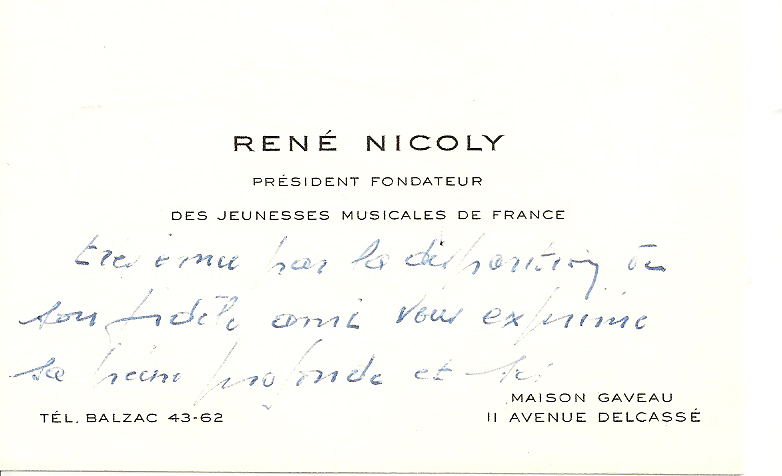 RENÉ NICOLY
PRÉSIDENT FONDATEUR
DES JEUNESSES MUSICALES DE FRANCE
très ému par la disparition de
son fidèle ami vous exprime
sa peine profonde et
MAISON GAVEAU
TÉL. BALZAC 43-62
11 AVENUE DELCASSÉ